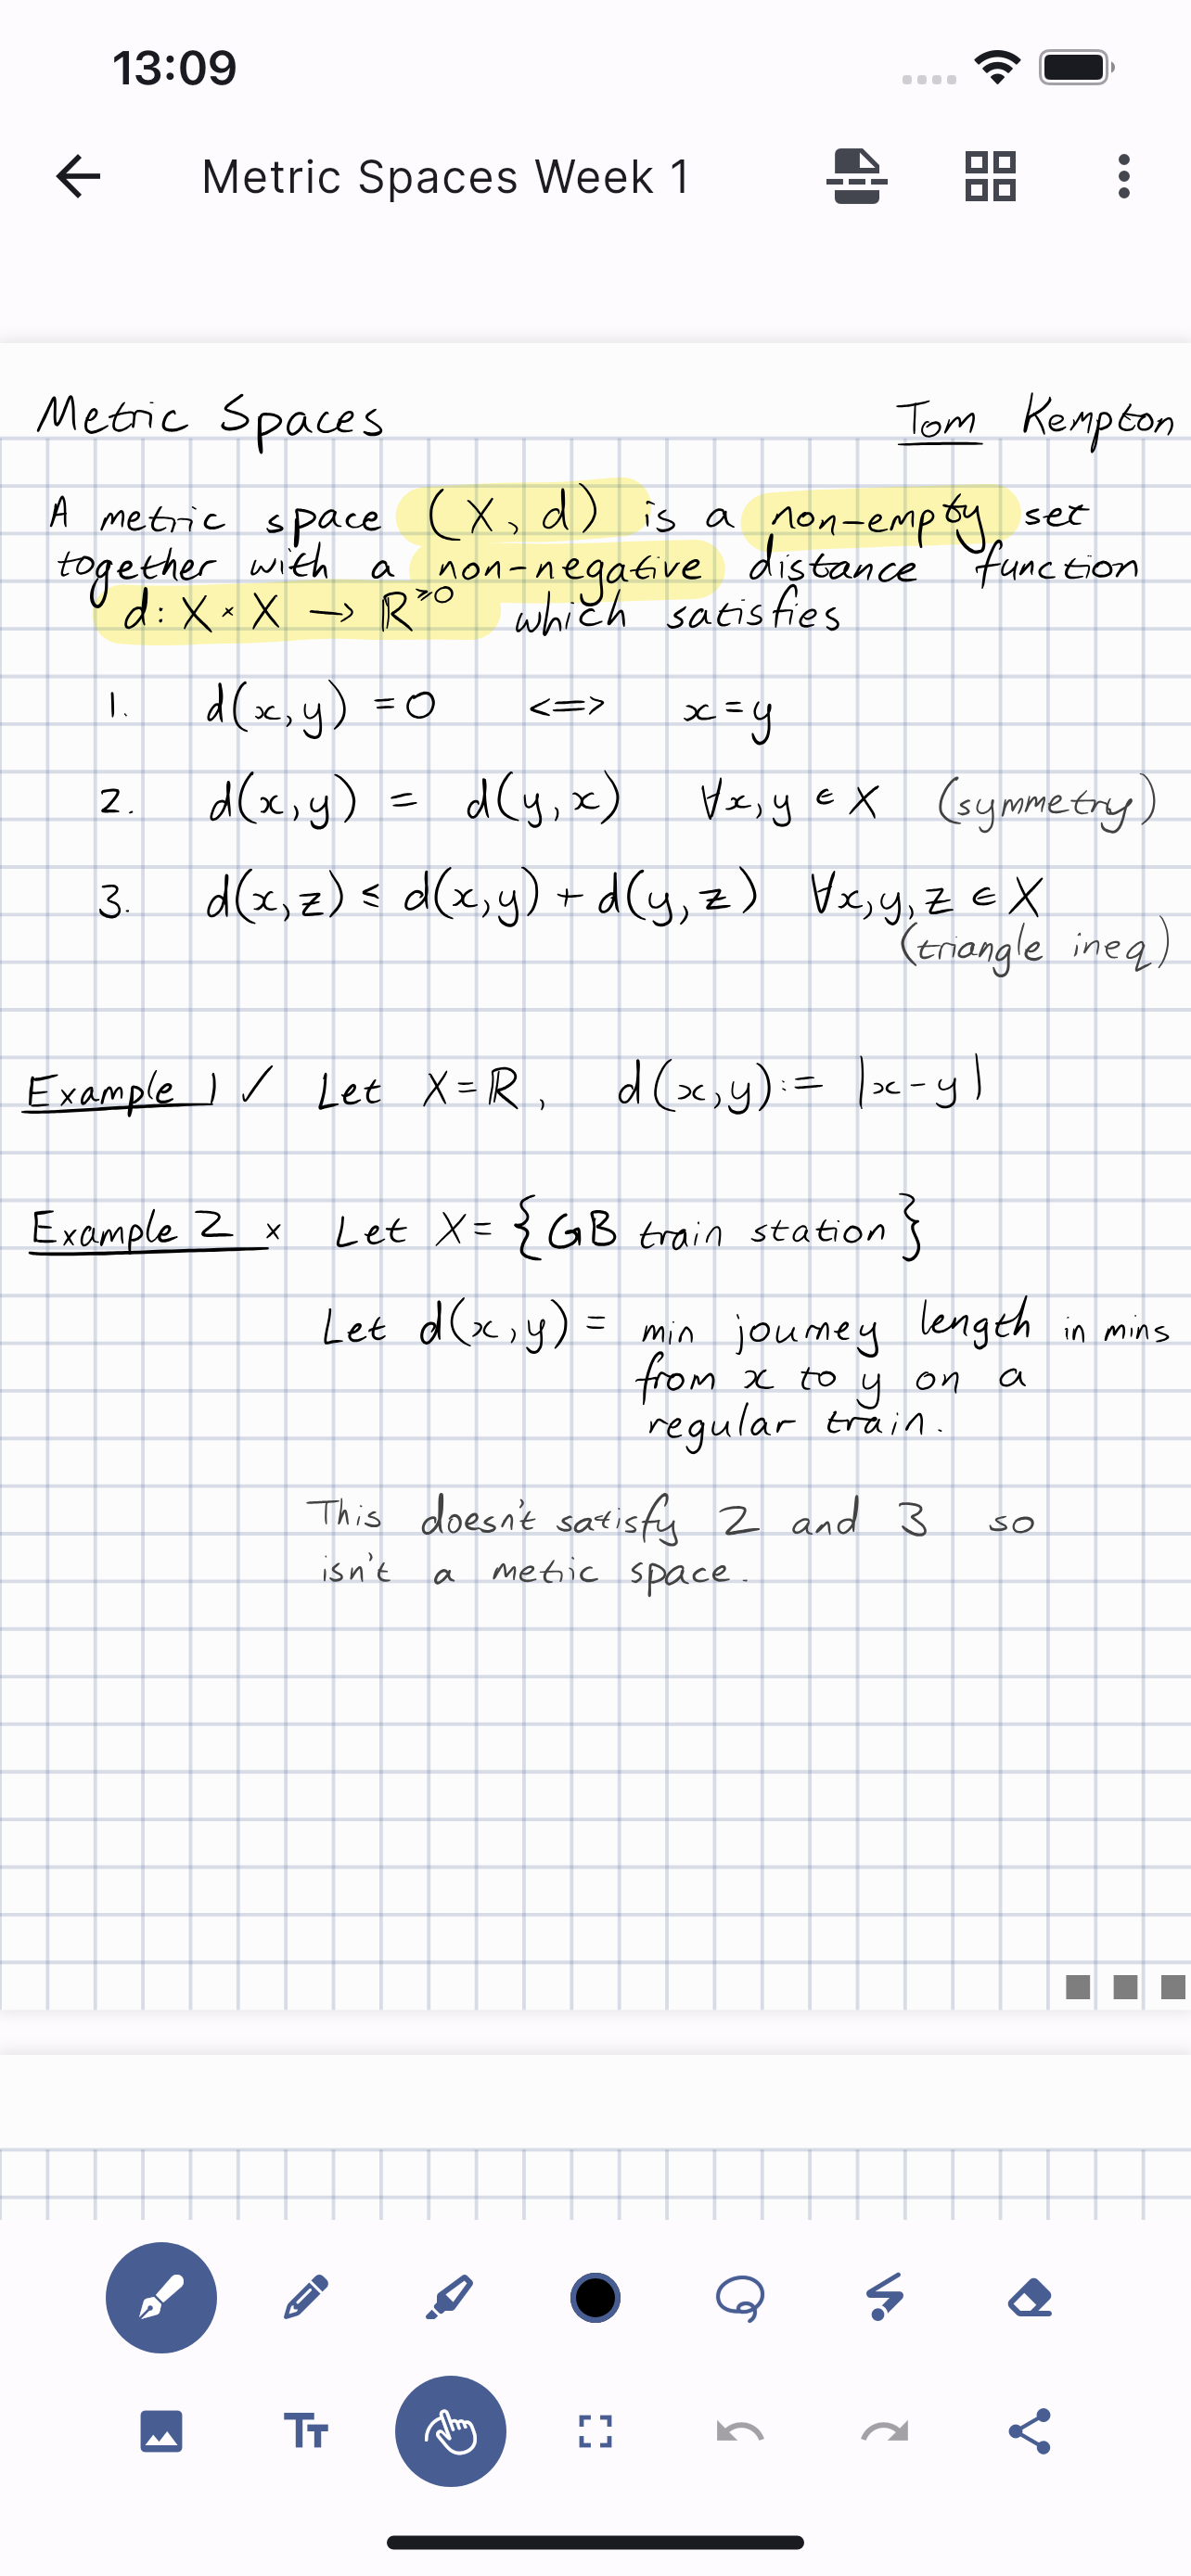 13:09
Metric Spaces Week 1
Metric Spaces Tom Kempton
A metric space (X, d) is a non-empty set
together with a non-negative distance function
d: X × X → ℝ^≥0 which satisfies
1. d(x,y) = 0 <=> x = y
2. d(x,y) = d(y,x) ∀x,y ∈ X (symmetry)
3. d(x,z) ≤ d(x,y) + d(y,z) ∀x,y,z ∈ X
(triangle ineq)
Example 1 ✓ Let X = ℝ, d(x,y) := |x-y|
Example 2 × Let X = {GB train station}
Let d(x,y) = min journey length in mins
from x to y on a
regular train.
This doesn't satisfy 2 and 3 so
isn't a metic space.
Tт